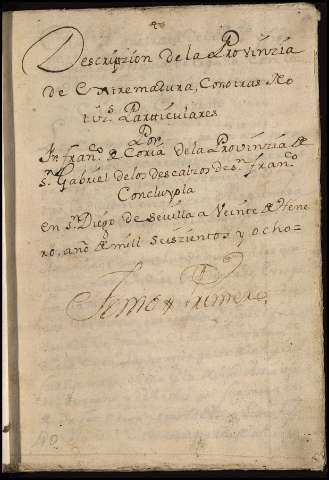 Descripzion de la Provinzia
de Extremadura, Con otras No
tizs. Particulares
Por
Fr. franco. de Coria de la Provinzia de
sn. Gabriel de los descalzos de sn. franco.
Concluyola
en sn. Diego de sevilla a Veinte de Hene
ro, año de mill seiszientos y ocho-
Tomo Primero